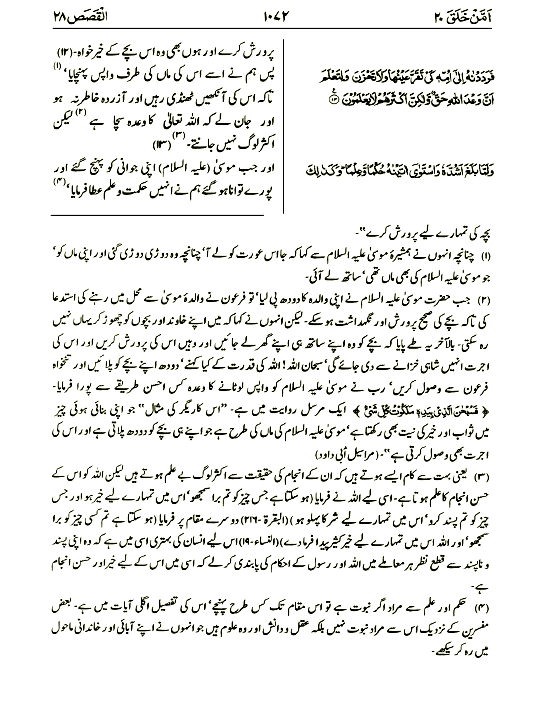 القصص ۲۸
۱۰۷۲
امن خلق ۲۰
فَرَدَدْنٰهُ اِلٰٓى اُمِّهٖ كَیْ تَقَرَّ عَیْنُهَا وَلَا تَحْزَنَ وَلِتَعْلَمَ
اَنَّ وَعْدَ اللّٰهِ حَقٌّ وَّلٰكِنَّ اَكْثَرَهُمْ لَا یَعْلَمُوْنَ ۝۱۳
وَلَمَّا بَلَغَ اَشُدَّهٗ وَاسْتَوٰۤى اٰتَیْنٰهُ حُكْمًا وَّعِلْمًا ؕ وَكَذٰلِكَ
پرورش کرے اور ہوں بھی وہ اس بچے کے خیر خواہ۔ (۱۲)
پس ہم نے اسے اس کی ماں کی طرف واپس پہنچایا، (۱)
تاکہ اس کی آنکھیں ٹھنڈی رہیں اور آزردہ خاطر نہ ہو
اور جان لے کہ اللہ تعالیٰ کا وعدہ سچا ہے (۲) لیکن
اکثر لوگ نہیں جانتے۔ (۳) (۱۳)
اور جب موسیٰ (علیہ السلام) اپنی جوانی کو پہنچ گئے اور
پورے توانا ہو گئے ہم نے انہیں حکمت و علم عطا فرمایا، (۴)
بچہ کی تمہارے لیے پرورش کرے"۔
(۱) چنانچہ انہوں نے ہمشیرۂ موسیٰ علیہ السلام سے کہا کہ جا اس عورت کو لے آ، چنانچہ وہ دوڑی دوڑی گئی اور اپنی ماں کو،
جو موسیٰ علیہ السلام کی بھی ماں تھی، ساتھ لے آئی۔
(۲) جب حضرت موسیٰ علیہ السلام نے اپنی والدہ کا دودھ پی لیا، تو فرعون نے والدۂ موسیٰ سے محل میں رہنے کی استدعا
کی تاکہ بچے کی صحیح پرورش اور نگہداشت ہو سکے۔ لیکن انہوں نے کہا کہ میں اپنے خاوند اور بچوں کو چھوڑ کر یہاں نہیں
رہ سکتی۔ بالآخر یہ طے پایا کہ بچے کو وہ اپنے ساتھ ہی اپنے گھر لے جائیں اور وہیں اس کی پرورش کریں اور اس کی
اجرت انہیں شاہی خزانے سے دی جائے گی، سبحان اللہ! اللہ کی قدرت کے کیا کہنے، دودھ اپنے بچے کو پلائیں اور تنخواہ
فرعون سے وصول کریں، رب نے موسیٰ علیہ السلام کو واپس لوٹانے کا وعدہ کس احسن طریقے سے پورا فرمایا۔
﴿ فَسُبْحٰنَ الَّذِیْ بِیَدِهٖ مَلَكُوْتُ كُلِّ شَیْءٍ ﴾ ایک مرسل روایت میں ہے۔ "اس کاریگر کی مثال" جو اپنی بنائی ہوئی چیز
میں ثواب اور خیر کی نیت بھی رکھتا ہے، موسیٰ علیہ السلام کی ماں کی طرح ہے جو اپنے ہی بچے کو دودھ پلاتی ہے اور اس کی
اجرت بھی وصول کرتی ہے"۔ (مراسیل أبی داود)
(۳) یعنی بہت سے کام ایسے ہوتے ہیں کہ ان کے انجام کی حقیقت سے اکثر لوگ بے علم ہوتے ہیں لیکن اللہ کو اس کے
حسن انجام کا علم ہوتا ہے۔ اسی لیے اللہ نے فرمایا (ہو سکتا ہے جس چیز کو تم برا سمجھو، اس میں تمہارے لیے خیر ہو اور جس
چیز کو تم پسند کرو، اس میں تمہارے لیے شر کا پہلو ہو) (البقرۃ ۔۲۱۶) دوسرے مقام پر فرمایا (ہو سکتا ہے تم کسی چیز کو برا
سمجھو، اور اللہ اس میں تمہارے لیے خیر کثیر پیدا فرما دے) (النساء۔۱۹) اس لیے انسان کی بہتری اسی میں ہے کہ وہ اپنی پسند
و ناپسند سے قطع نظر ہر معاملے میں اللہ اور رسول کے احکام کی پابندی کر لے کہ اسی میں اس کے لیے خیر اور حسن انجام
ہے۔
(۴) حکم اور علم سے مراد اگر نبوت ہے تو اس مقام تک کس طرح پہنچے، اس کی تفصیل اگلی آیات میں ہے۔ بعض
مفسرین کے نزدیک اس سے مراد نبوت نہیں بلکہ عقل و دانش اور وہ علوم ہیں جو انہوں نے اپنے آبائی اور خاندانی ماحول
میں رہ کر سیکھے۔